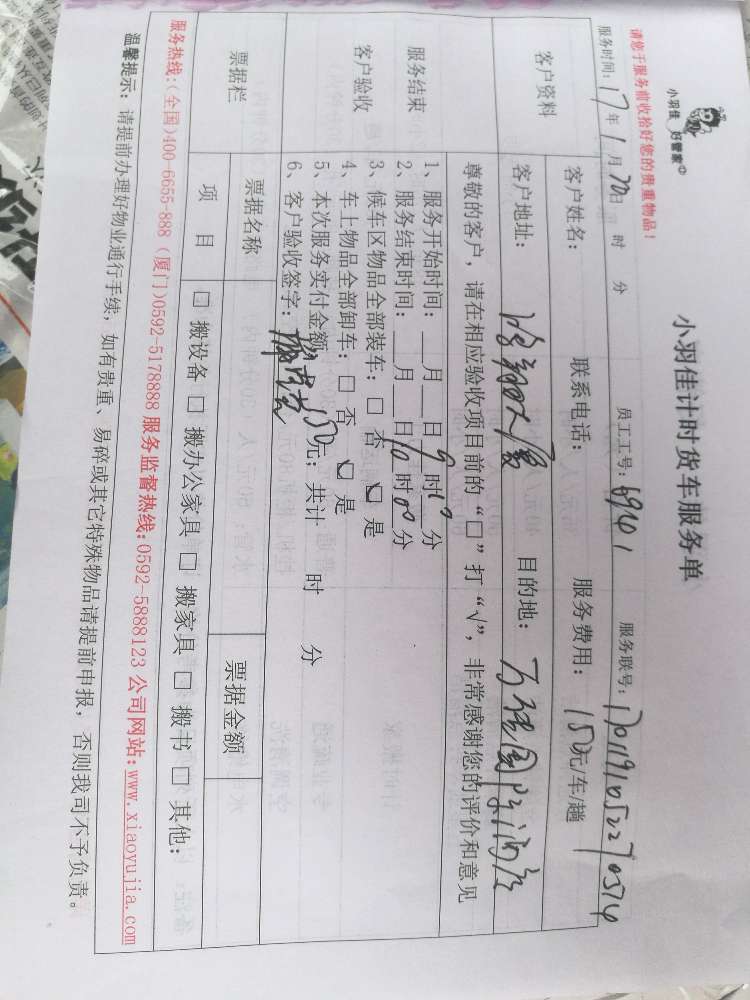 小羽佳 好管家
小羽佳计时货车服务单
请您于服务前收拾好您的贵重物品！
服务时间：17年1月20日 时 分 员工工号：69401 服务联号：
客户资料
客户姓名： 联系电话： 服务费用：150元/车/趟
客户地址： 目的地：
尊敬的客户，请在相应验收项目前的“□”打“√”，非常感谢您的评价和意见
服务结束
客户验收
1、服务开始时间：___月___日9时10分
2、服务结束时间：___月___日10时00分
3、候车区物品全部装车：□ 否 □ 是
4、车上物品全部卸车：□ 否 □ 是
5、本次服务实付金额150元；共计 时 分
6、客户验收签字：
票据栏
票据名称 票据金额
项 目 □ 搬设备 □ 搬办公家具 □ 搬家具 □ 搬书 □ 其他：
服务热线:(全国)400-6655-888 (厦门)0592-5178888 服务监督热线:0592-5888123 公司网站:www.xiaoyujia.com
温馨提示：请提前办理好物业通行手续，如有贵重、易碎或其它特殊物品请提前申报，否则我司不予负责。